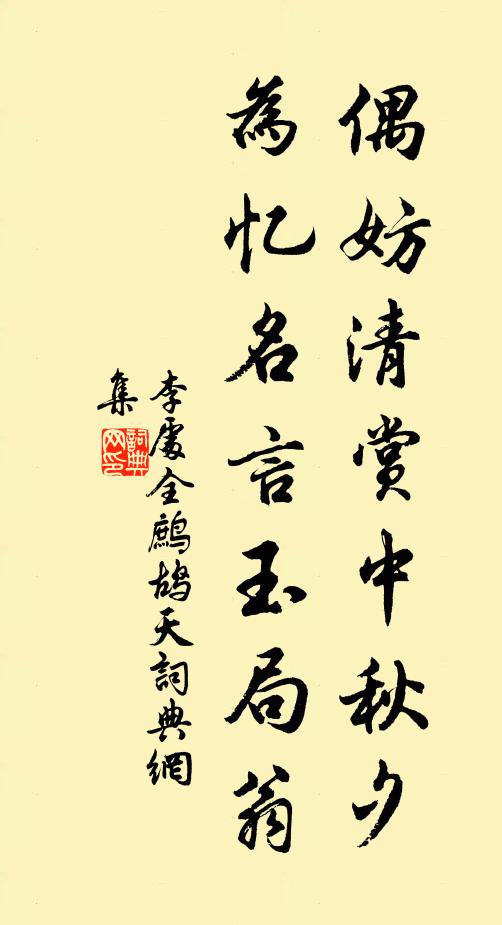 偶妨清赏中秋夕
為忆名言玉局翁
李處全鷓鴣天詞典網
集
詞典
网印